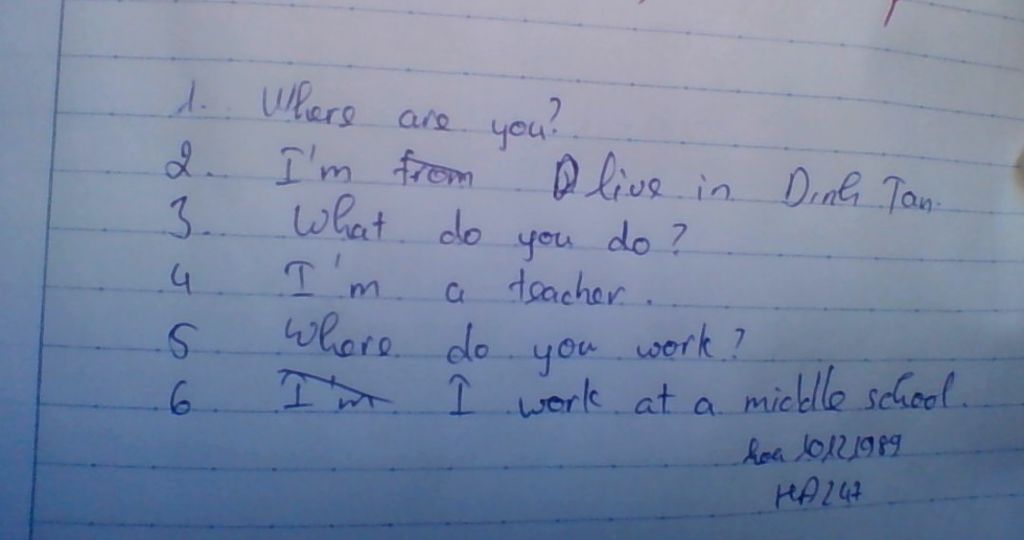 1. Where are you?
2. I'm from live in Dinh Tan.
3. What do you do?
4 I'm a teacher.
5 Where do you work?
6 I'm I work at a middle school.
hoa 10121989